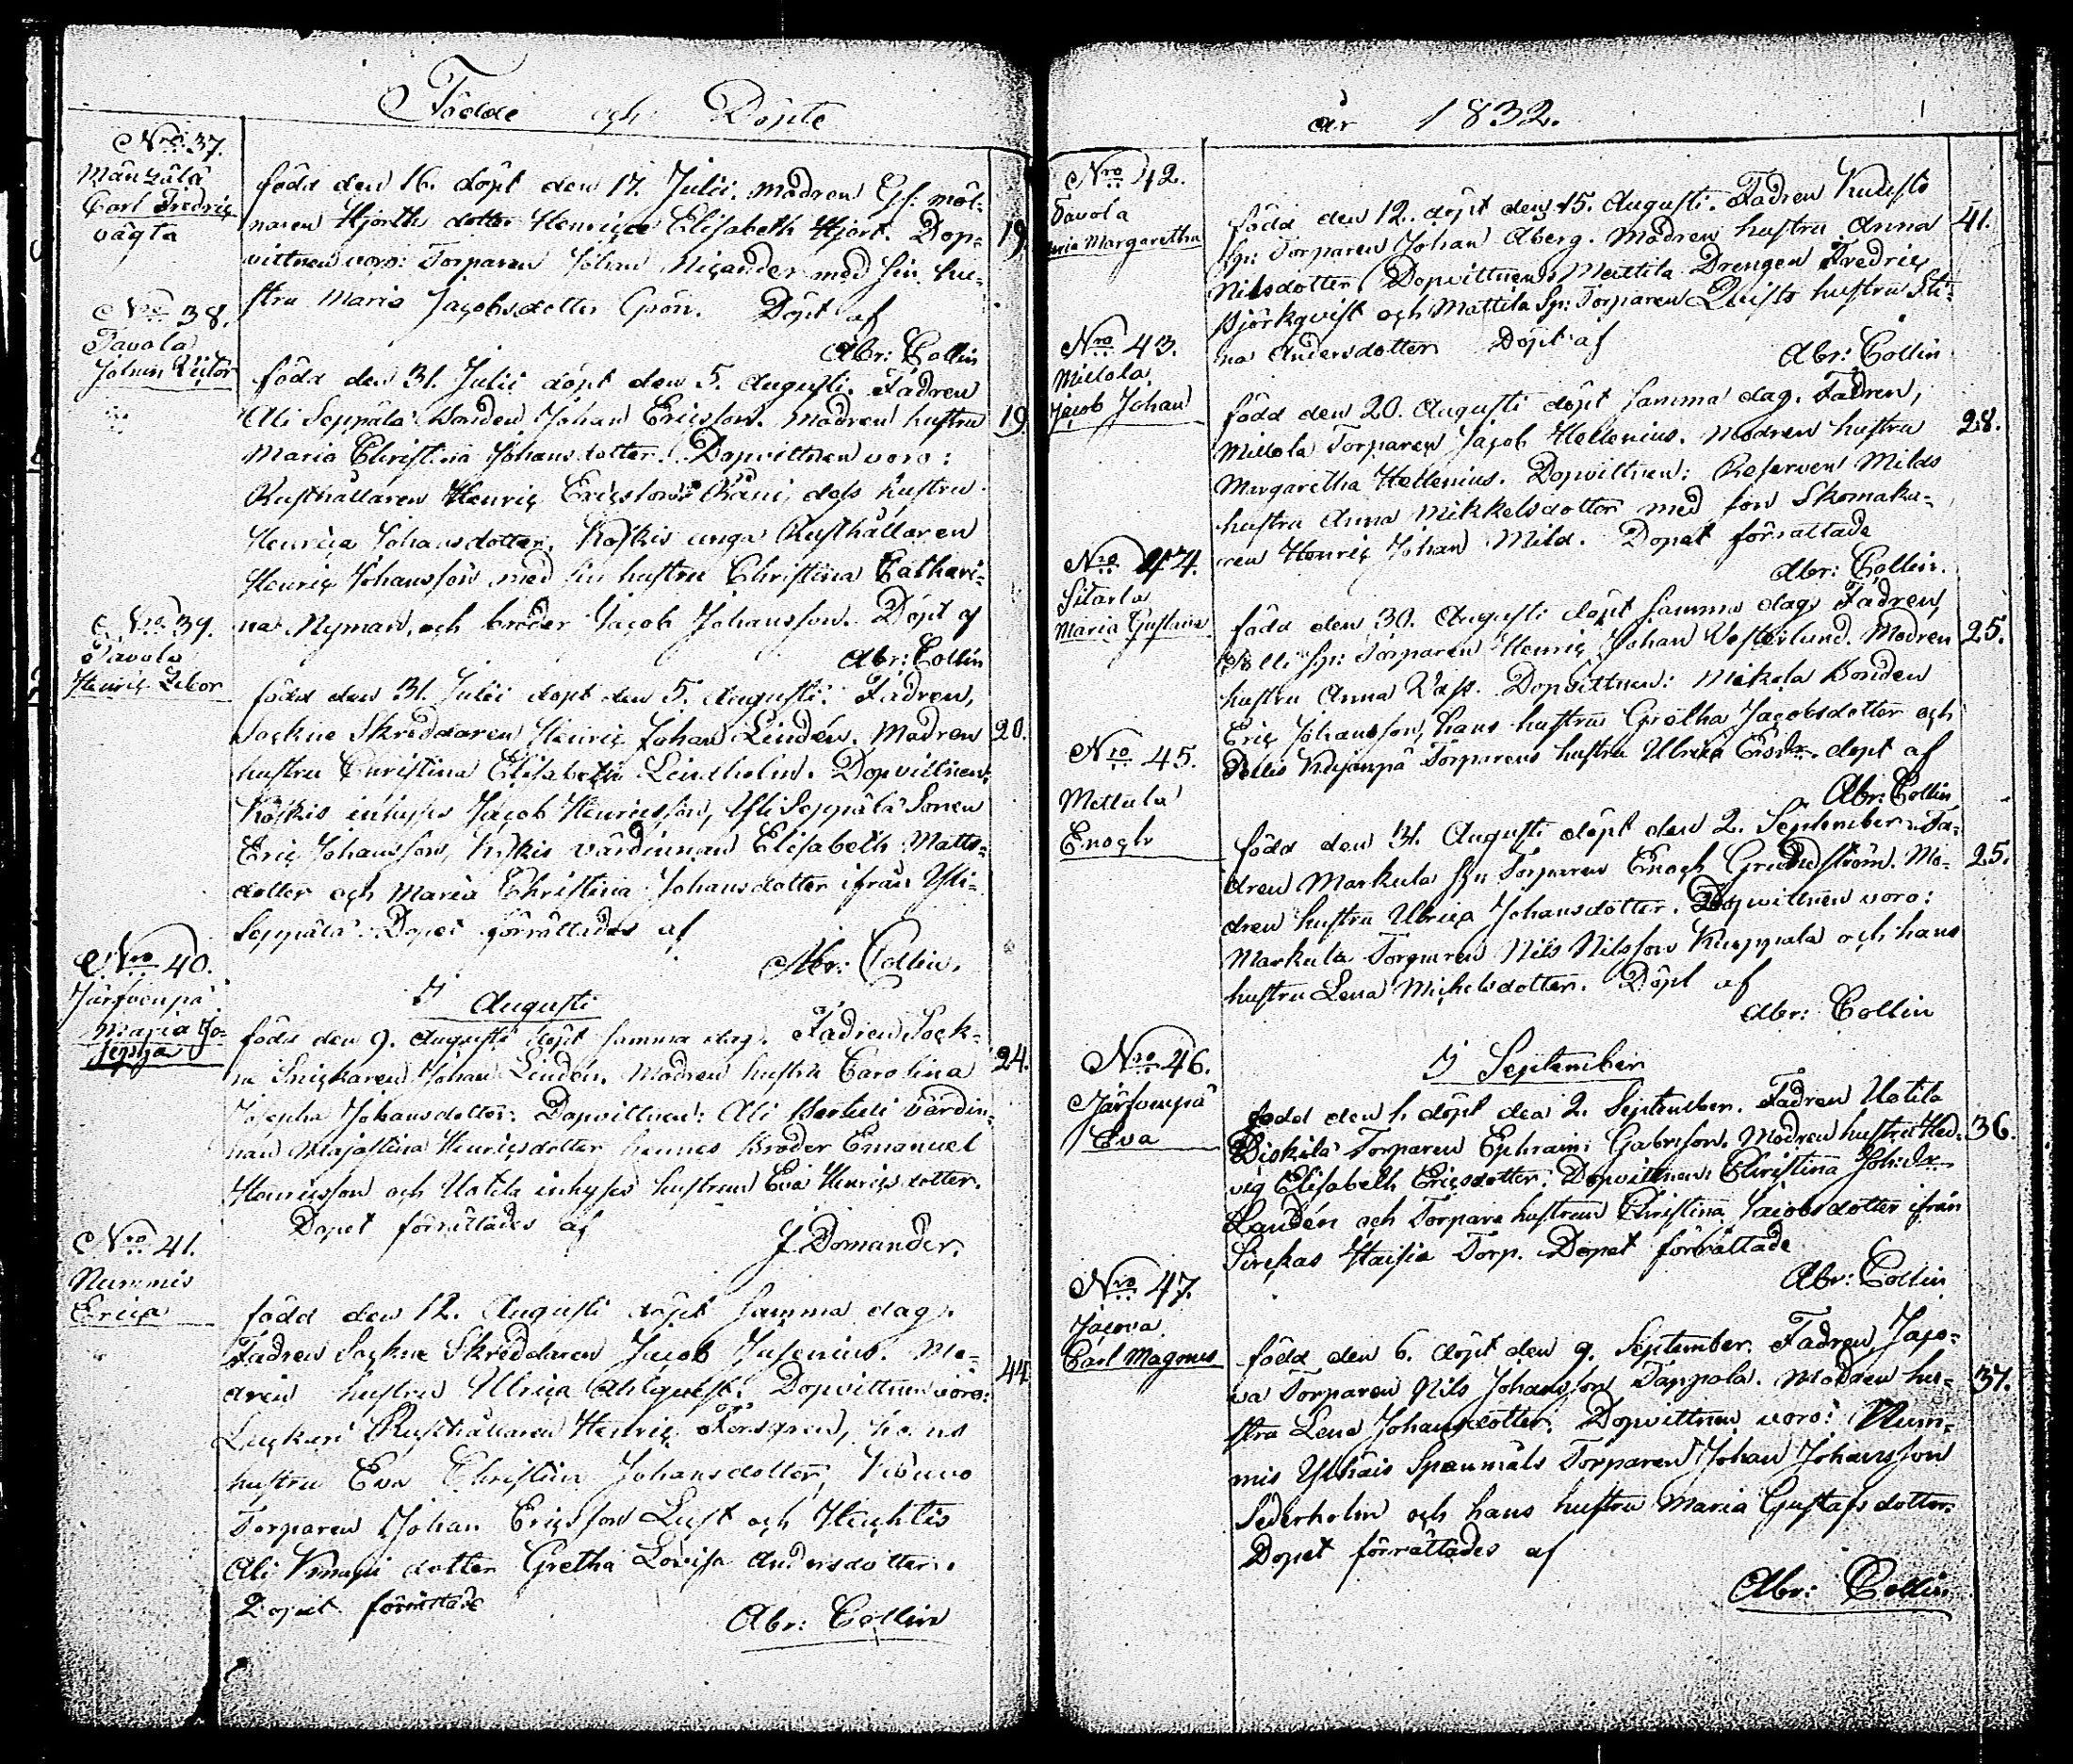 Födde och Döpte
Nro 37.
Mäntzälä
Carl Fredric
oägta
född den 16. döpt den 17. Julii. Modren Gf: möl-
naren Hjorth dotter Henrica Elisabeth Hjort. Dop-
19.
vittnen voro: Torparen Johan Nicander med sin hu-
stru Maria Jacobsdotter Grön. Döpt af
Abr: Collin
Nro 38.
Tavola
Johan Victor
född den 31. Julii döpt den 5. Augusti. Fadren
Ali Seppälä Bonden Johan Ericsson. Modren hustru
19
Maria Christina Johansdotter. Dopvittnen voro:
Rusthållaren Henric Ericsson Räni, dess hustru
Henrica Johansdotter, Koskis unga Rusthållaren
Henric Johansson med sin hustru Christina Cathari-
na Nyman, och broder Jacob Johansson. Döpt af
Abr: Collin
Nro 39.
Tavola
Henric Libor
född den 31. Julii döpt den 5. Augusti. Fadren,
Sockne Skreddaren Henric Johan Lindén. Modren
20.
hustru Christina Elisabeth Lindholm. Dopvittnen:
Koskis inhyses Jacob Henricsson, Yli Seppälä Sonen
Eric Johansson, Koskis värdinnan Elisabeth Matts-
dotter och Maria Christina Johansdotter ifrån Yli-
Seppälä. Dopet förrättades af
Abr: Collin.
I Augusti
Nro 40.
Järfvenpä
Maria Jo-
sepha
född den 9. Augusti döpt samma dag. Fadren Sock-
ne Snickaren Johan Lindén. Modren hustru Carolina
24.
Josepha Johansdotter. Dopvittnen: Ali Perttuli värdin-
nan Majastina Henricsdotter hennes Broder Emanuel
Henricsson och Uotila inhyses hustrun Eva Henricsdotter.
Dopet förrättades af
J. Domander.
Nro 41.
Nummis
Erica
född den 12. Augusti döpt samma dag.
Fadren Sockne Skreddaren Jacob Jusenius. Mo-
dren hustru Ulrica Ahlqvist. Dopvittnen voro:
44
Luckuri Rusthållaren Henric Forsgren, hans
hustru Eva Christina Johansdotter,
Torparen Johan Ericsson Lust och Huchtis
Ali dotter Gretha Lovisa Andersdotter.
Dopet förrättade
Abr: Collin
år 1832.
Nro 42.
Tavola
Maria Margaretha
född den 12. döpt den 15. Augusti. Fadren
Sp: Torparen Johan Åberg. Modren hustru Anna
41.
Nilsdotter Dopvittnen Mattila Drengen Fredric
Björkqvist och Mattila Sp: Torparen Qvists hustru Sti-
na Andersdotter Döpt af
Abr: Collin
Nro 43.
Millola
Jacob Johan
född den 20. Augusti döpt samma dag. Fadren,
Millola Torparen Jacob Hellenius. Modren hustru
28.
Margaretha Hellenius. Dopvittnen: Reserven Milds
hustru Anna Mikkelsdotter med son Skomaka-
ren Henric Johan Mild. Dopet förrattade
Abr: Collin.
Nro 44.
Sitarla
Maria Gustava
född den 30. Augusti döpt samma dag. Fadren,
Polli Sp: Torparen Henric Johan Vesterlund. Modren
25.
hustru Anna Vass. Dopvittnen: Mikola Bonden
Eric Johansson, hans hustru Gretha Jacobsdotter och
Torparens hustru Ulrica Ersdr. döpt af
Abr: Collin
Nro 45.
Mettula
Enoch
född den 31. Augusti döpt den 2. September. Fa-
dren Markula Sp: Torparen Enoch Grundström. Mo-
25.
dren hustru Ulrica Johansdotter. Dopvittnen voro:
Markula Torparen Nils Nilsson Kuppala och hans
hustru Lena Michelsdotter. Döpt af
Abr: Collin
I September
Nro 46.
Järfvenpä
Eva
född den 1. döpt den 2. September. Fadren Uotila
Piskilä Torparen Ephraim Gabrsson. Modren hustru Hed-
36.
vig Elisabeth Ericsdotter. Dopvittnen: Christina Joh:dr
Landén och Torpare hustrun Christina Jacobsdotter ifrån
Sirckas Haisia Torp. Dopet förrättade
Abr: Collin
Nro 47.
Jacova
Carl Magnus
född den 6. döpt den 9. September. Fadren, Jaco-
va Torparen Nils Johansson Tappola. Modren hu-
37.
stru Lena Johansdotter. Dopvittnen voro: Num-
mis Ylhäis Spanmåls Torparen Johan Johansson
Sederholm och hans hustru Maria Gustafsdotter.
Dopet förrättades af
Abr: Collin